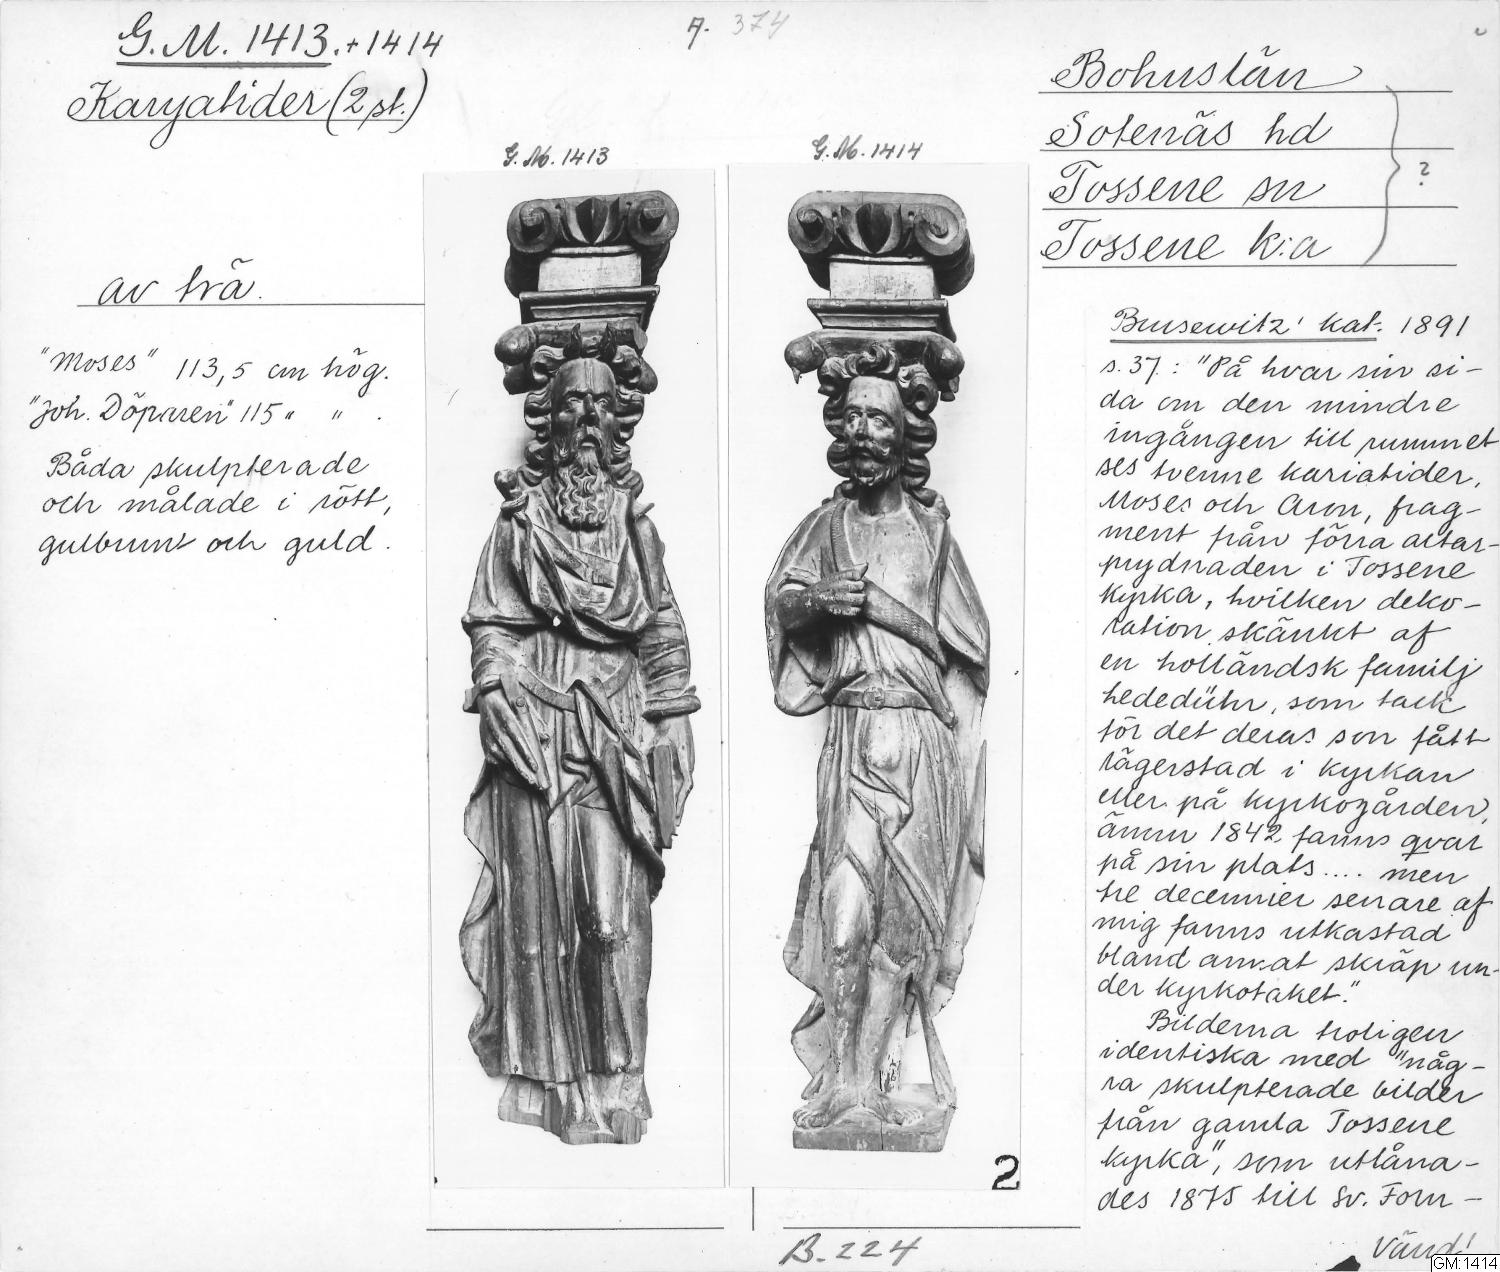 G.M. 1413.+1414
Karyatider (2 st.)
A. 374
Bohuslän
Sotenäs hd
Tossene sn
Tossene k:a
?
G.M. 1413
G.M. 1414
av trä.
"Moses" 113,5 cm hög.
"Joh. Döparen" 115 " " .
Båda skulpterade
och målade i rött,
gulbrunt och guld.
Brusewitz' kat. 1891
s. 37: "På hvar sin si-
da om den mindre
ingången till rummet
ses tvenne kariatider,
Moses och Aron, frag-
ment från förra altar-
prydnaden i Tossene
kyrka, hvilken deko-
ration, skänkt af
en holländsk familj
hedeDühr, som tack
för det deras son fått
lägerstad i kyrkan
eller på kyrkogården,
ännu 1842 fanns qvar
på sin plats.... men
tre decennier senare af
mig fanns utkastad
bland annat skräp un-
der kyrkotaket."
Bilderna troligen
identiska med "någ-
ra skulpterade bilder
från gamla Tossene
kyrka", som utlåna-
des 1875 till Sv. Forn-
Vänd!
2
B. 224
GM:1414